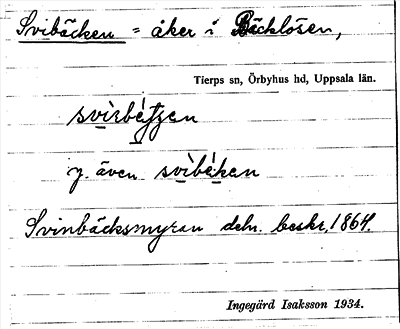 Svibäcken = åker i Bäcklösen,
Tierps sn, Örbyhus hd, Uppsala län.
y. även svibäken
Svinbäcksmyran deln. beskr. 1864.
Ingegärd Isaksson 1934.